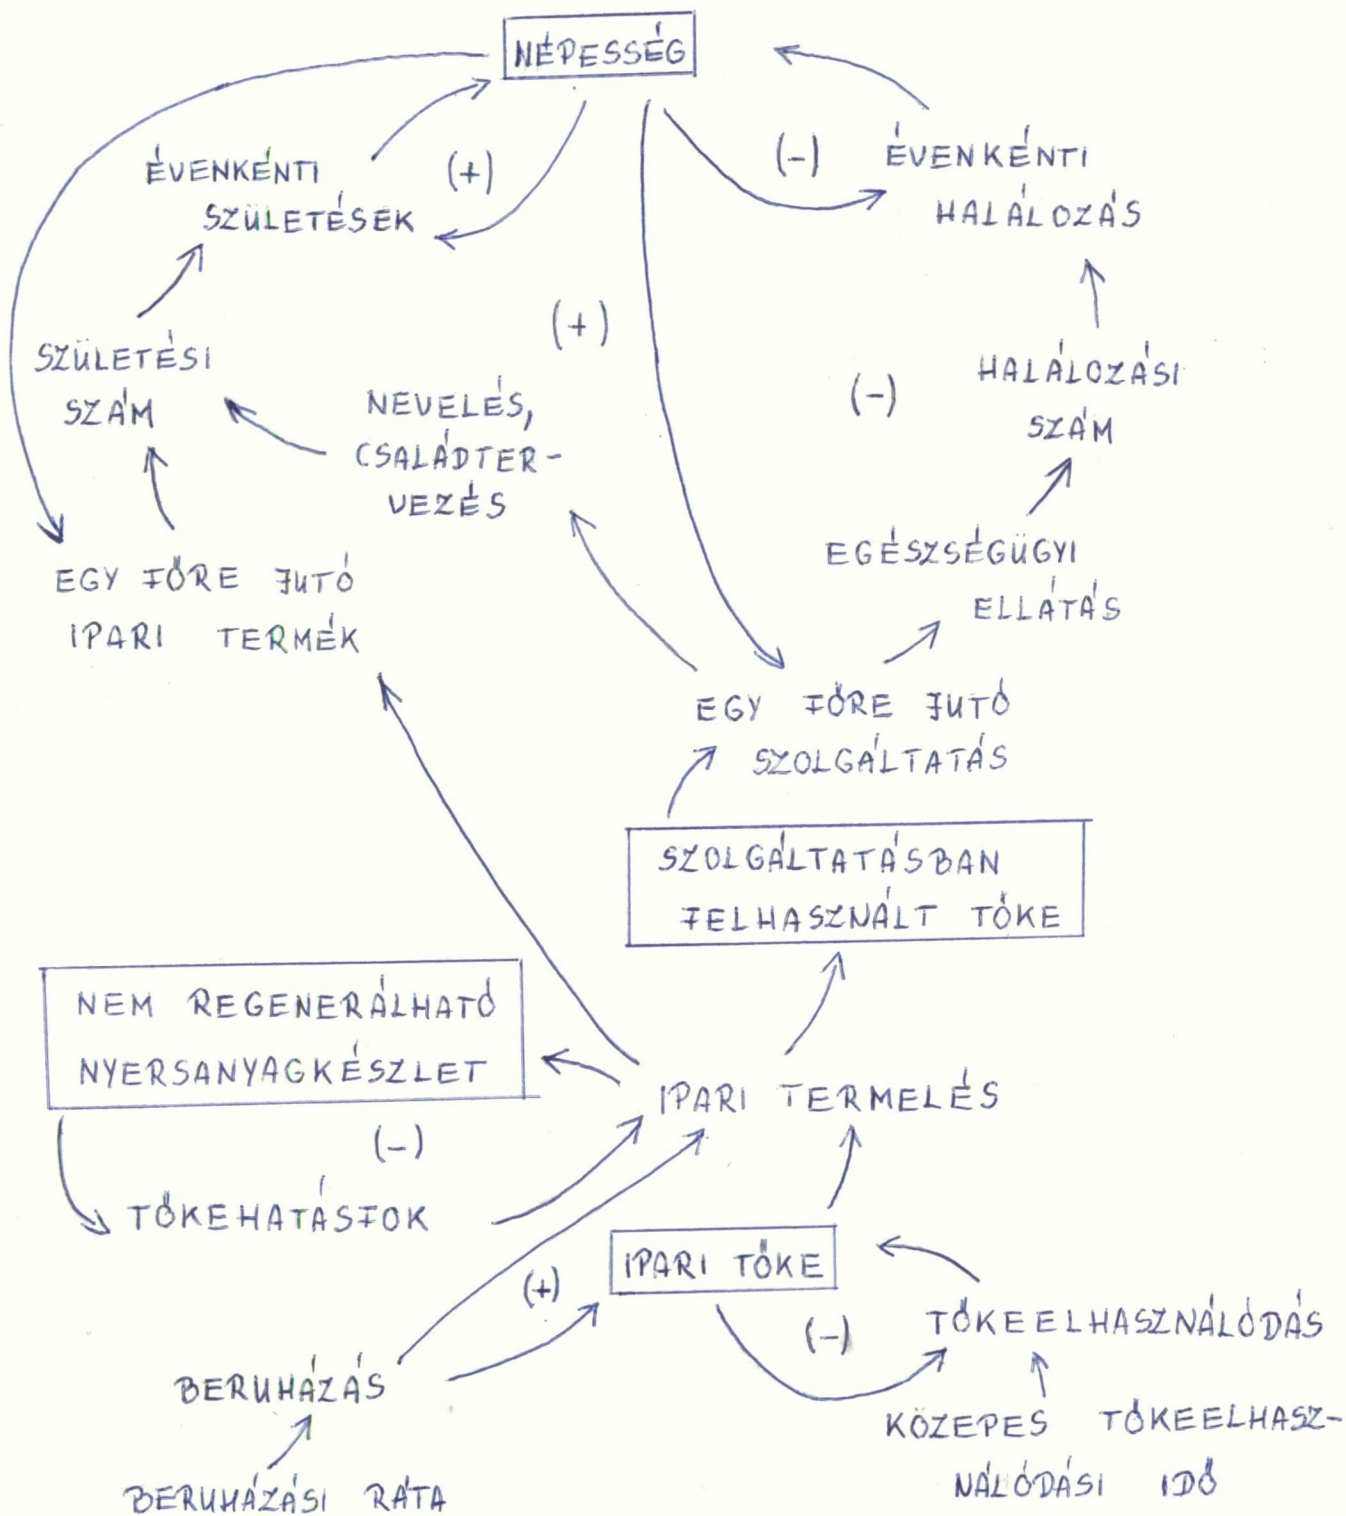 NÉPESSÉG
ÉVENKÉNTI
SZÜLETÉSEK
(+)
(-)
ÉVENKÉNTI
HALÁLOZÁS
(+)
SZÜLETÉSI
SZÁM
NEVELÉS,
CSALÁDTER-
VEZÉS
(-)
HALÁLOZÁSI
SZÁM
EGÉSZSÉGÜGYI
ELLÁTÁS
EGY FŐRE JUTÓ
IPARI TERMÉK
EGY FŐRE JUTÓ
SZOLGÁLTATÁS
SZOLGÁLTATÁSBAN
FELHASZNÁLT TŐKE
NEM REGENERÁLHATÓ
NYERSANYAGKÉSZLET
IPARI TERMELÉS
(-)
TŐKEHATÁSFOK
IPARI TŐKE
(+)
(-)
TŐKEELHASZNÁLÓDÁS
BERUHÁZÁS
KÖZEPES TŐKEELHASZ-
NÁLÓDÁSI IDŐ
BERUHÁZÁSI RÁTA